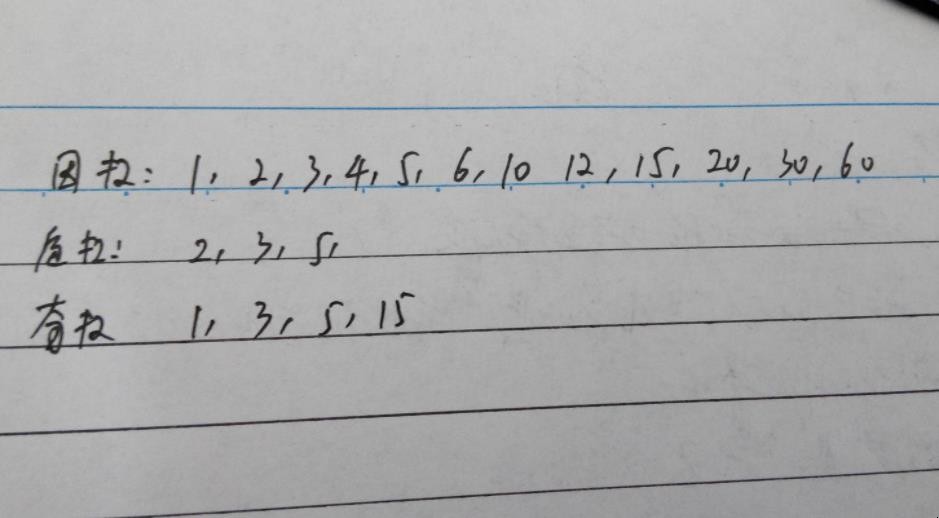 因数: 1, 2, 3, 4, 5, 6, 10 12, 15, 20, 30, 60
质数: 2, 3, 5,
奇数 1, 3, 5, 15